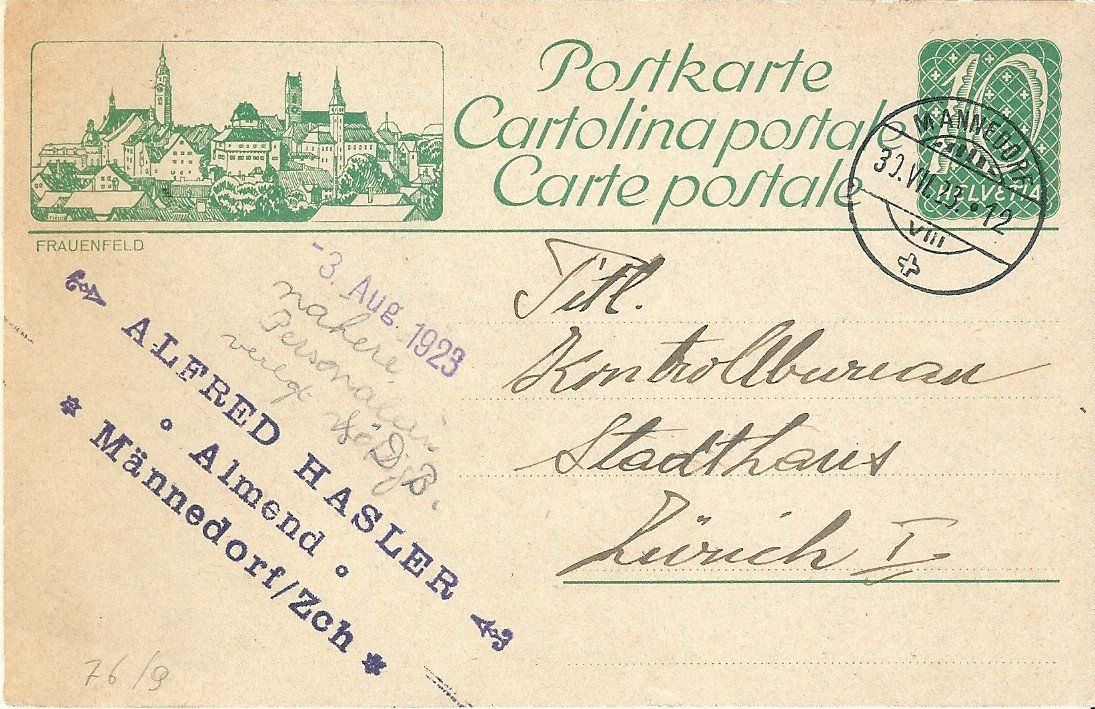 Postkarte
Cartolina postale
Carte postale
10
HELVETIA
MÄNNEDORF
30.VII.23.•12
VIII
FRAUENFELD
-3. Aug. 1923
nähere
Personalien
verlgt
D.B.
ALFRED HASLER
° Almend °
* Männedorf/Zch *
Titl.
Kontrollbureau
Stadthaus
Zürich I
76/9